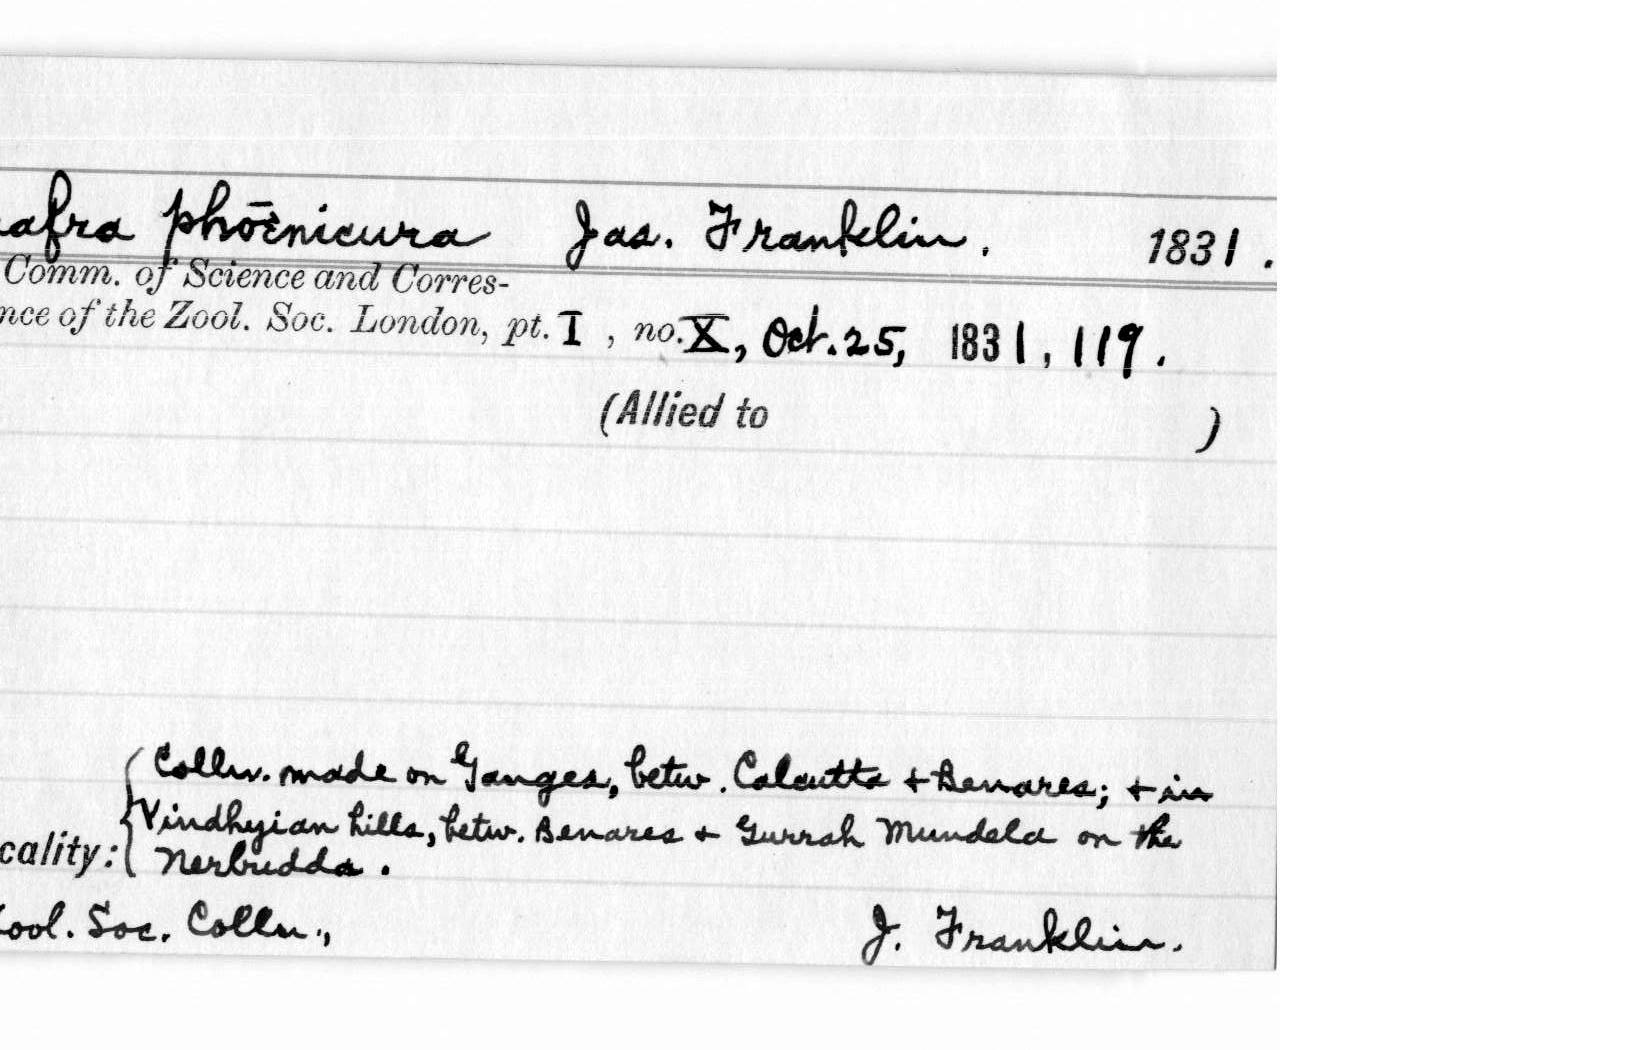 afra phoenicura Jas. Franklin. 1831.
Comm. of Science and Corres-
nce of the Zool. Soc. London, pt. I, no. X, Oct. 25, 1831, 119.
(Allied to )
Colln. made on Ganges, betw. Calcutta + Benares; + in
Vindhyian hills, betw. Benares + Gurrah Mundela on the
cality: Nerbudda.
ool. Soc. Colln., J. Franklin.